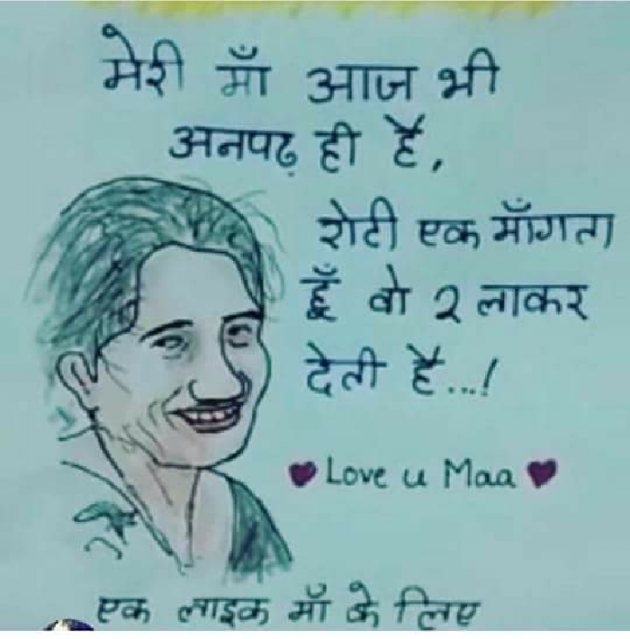 मेरी माँ आज भी
अनपढ़ ही है,
रोटी एक माँगता
हूँ वो २ लाकर
देती है...!
Love u Maa
एक लाइक माँ के लिए